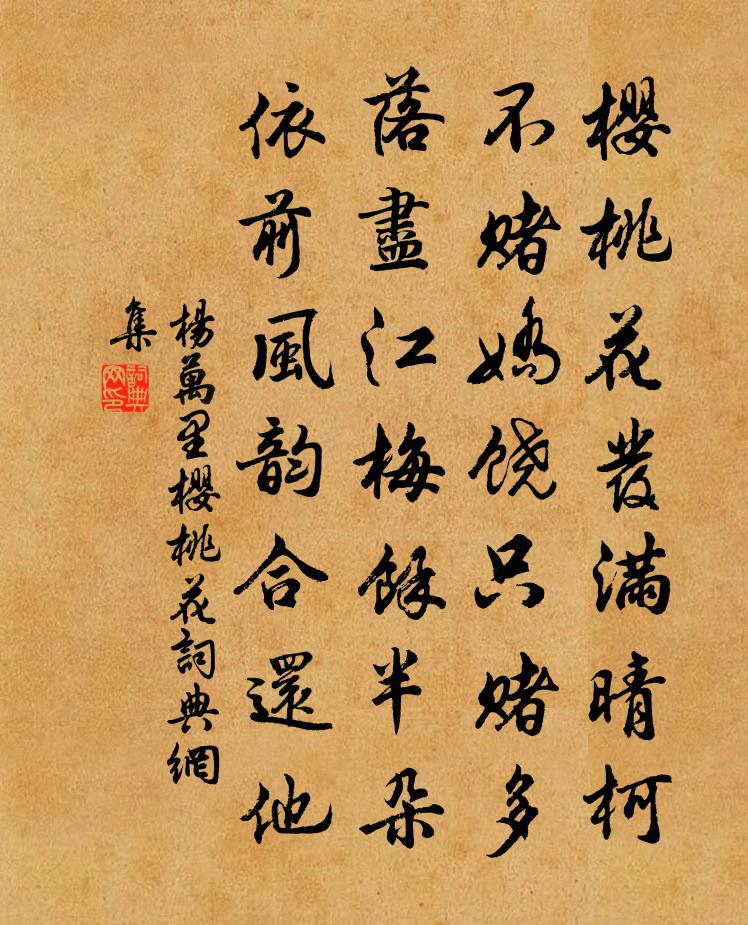 櫻桃花發滿晴柯
不賭嬌饒只賭多
落盡江梅餘半朵
依前風韵合還他
楊萬里櫻桃花詞典網
集
詞典
网印